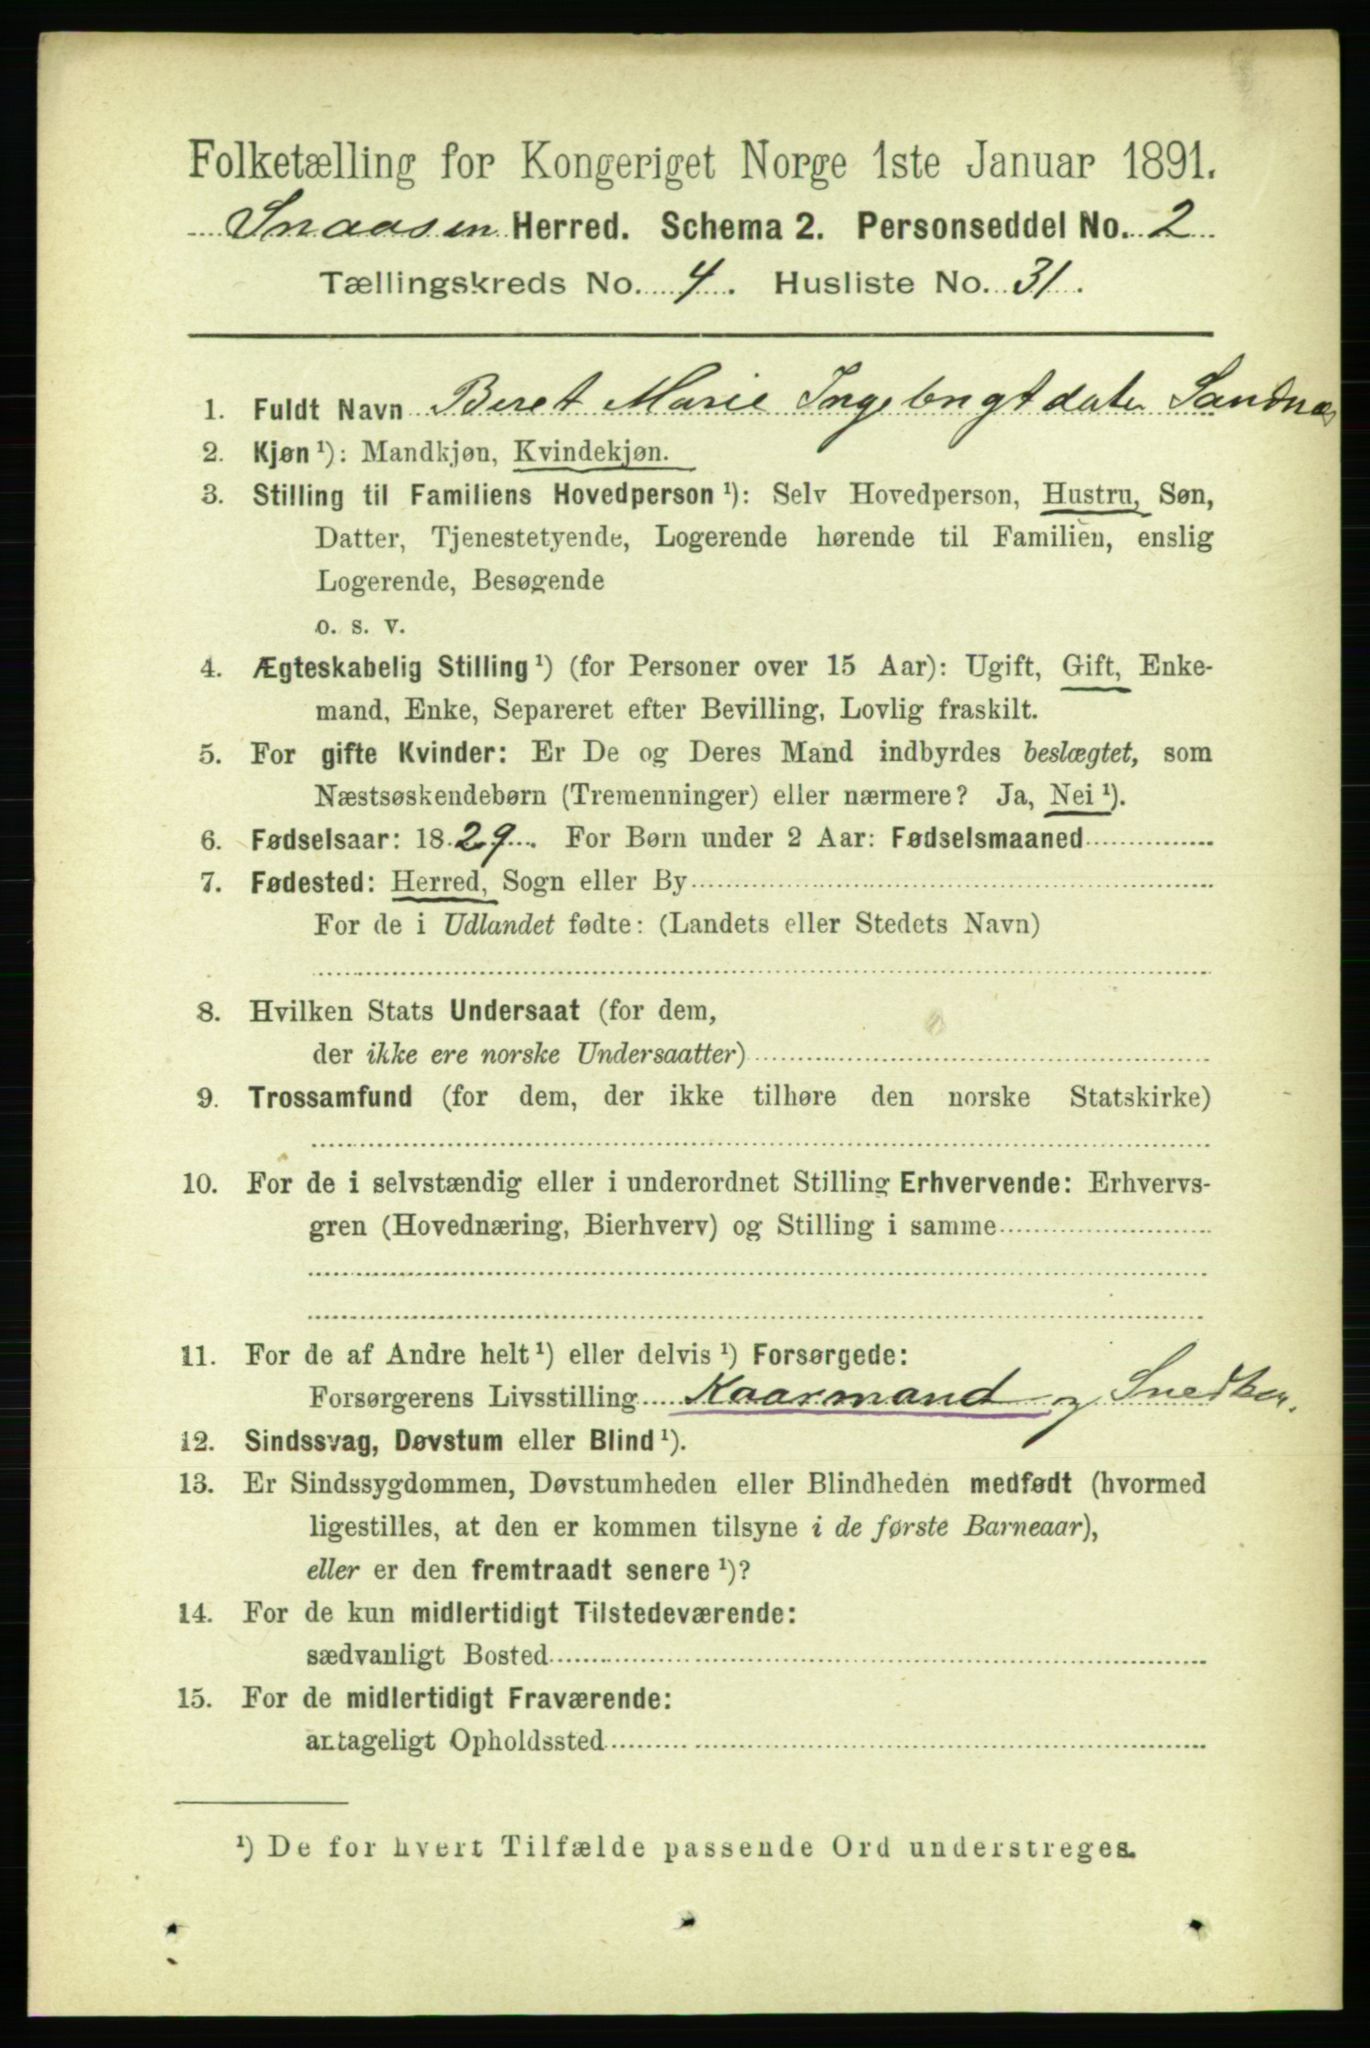 Folketælling for Kongeriget Norge 1ste Januar 1891.
Snaasen Herred. Schema 2. Personseddel No. 2
Tællingskreds No. 4. Husliste No. 31.
1. Fuldt Navn Beret Marie Ingebrigtdatr Sandnæs
2. Kjøn ¹): Mandkjøn, Kvindekjøn.
3. Stilling til Familiens Hovedperson ¹): Selv Hovedperson, Hustru, Søn,
Datter, Tjenestetyende, Logerende hørende til Familien, enslig
Logerende, Besøgende
o. s. v.
4. Ægteskabelig Stilling ¹) (for Personer over 15 Aar): Ugift, Gift, Enke-
mand, Enke, Separeret efter Bevilling, Lovlig fraskilt.
5. For gifte Kvinder: Er De og Deres Mand indbyrdes beslægtet, som
Næstsøskendebørn (Tremenninger) eller nærmere? Ja, Nei ¹).
6. Fødselsaar: 1829. For Børn under 2 Aar: Fødselsmaaned
7. Fødested: Herred, Sogn eller By
For de i Udlandet fødte: (Landets eller Stedets Navn)
8. Hvilken Stats Undersaat (for dem,
der ikke ere norske Undersaatter)
9. Trossamfund (for dem, der ikke tilhøre den norske Statskirke)
10. For de i selvstændig eller i underordnet Stilling Erhvervende: Erhvervs-
gren (Hovednæring, Bierhverv) og Stilling i samme
11. For de af Andre helt ¹) eller delvis ¹) Forsørgede:
Forsørgerens Livsstilling Kaarmand og Snedker.
12. Sindssvag, Døvstum eller Blind ¹).
13. Er Sindssygdommen, Døvstumheden eller Blindheden medfødt (hvormed
ligestilles, at den er kommen tilsyne i de første Barneaar),
eller er den fremtraadt senere ¹)?
14. For de kun midlertidigt Tilstedeværende:
sædvanligt Bosted
15. For de midlertidigt Fraværende:
antageligt Opholdssted
¹) De for hvert Tilfælde passende Ord understreges.